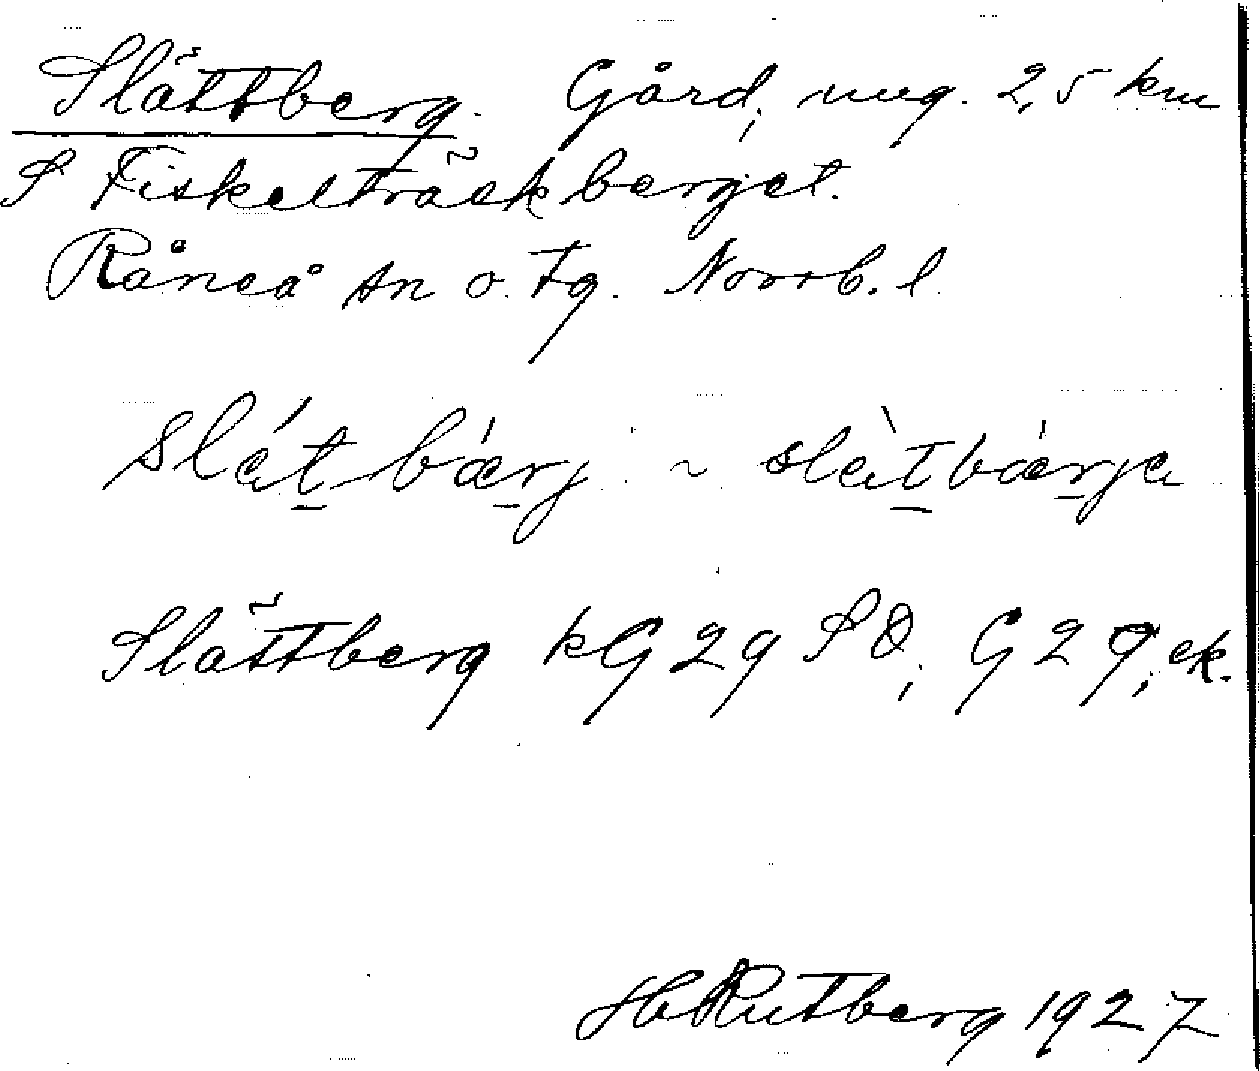 Slättberg. Gård, ung. 2,5 km
S Fiskelträskberget.
Råneå sn o. tg. Norrb. l.
slátbærj ~ slàtbærja
Slättberg kG 29 SO, G 29, ek.
H Rutberg 1927